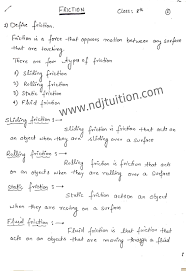 FRICTION
Class: 8th
1) Define friction.
Friction is a force that opposes motion between any surface
that are touching.
There are few types of friction
1) Sliding friction
2) Rolling friction
3) Static friction
4) Fluid friction
www.ndjtuition.com
Sliding friction :→
Sliding friction is friction that acts
on an object when they are sliding over a surface
Rolling friction :→
Rolling friction is friction that acts
on an object when they are rolling over a surface
Static friction :→
Static friction acts on an object
when they are resting on a surface
Fluid friction :→
Fluid friction is that friction that
acts on an objects that are moving through a fluid